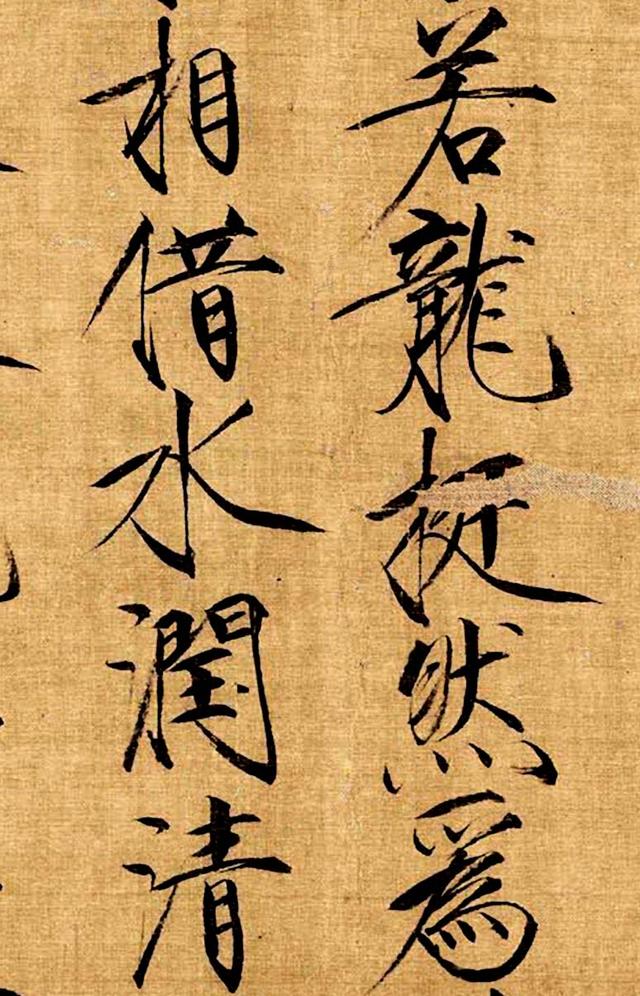 若龍挺然爲
相借水潤清